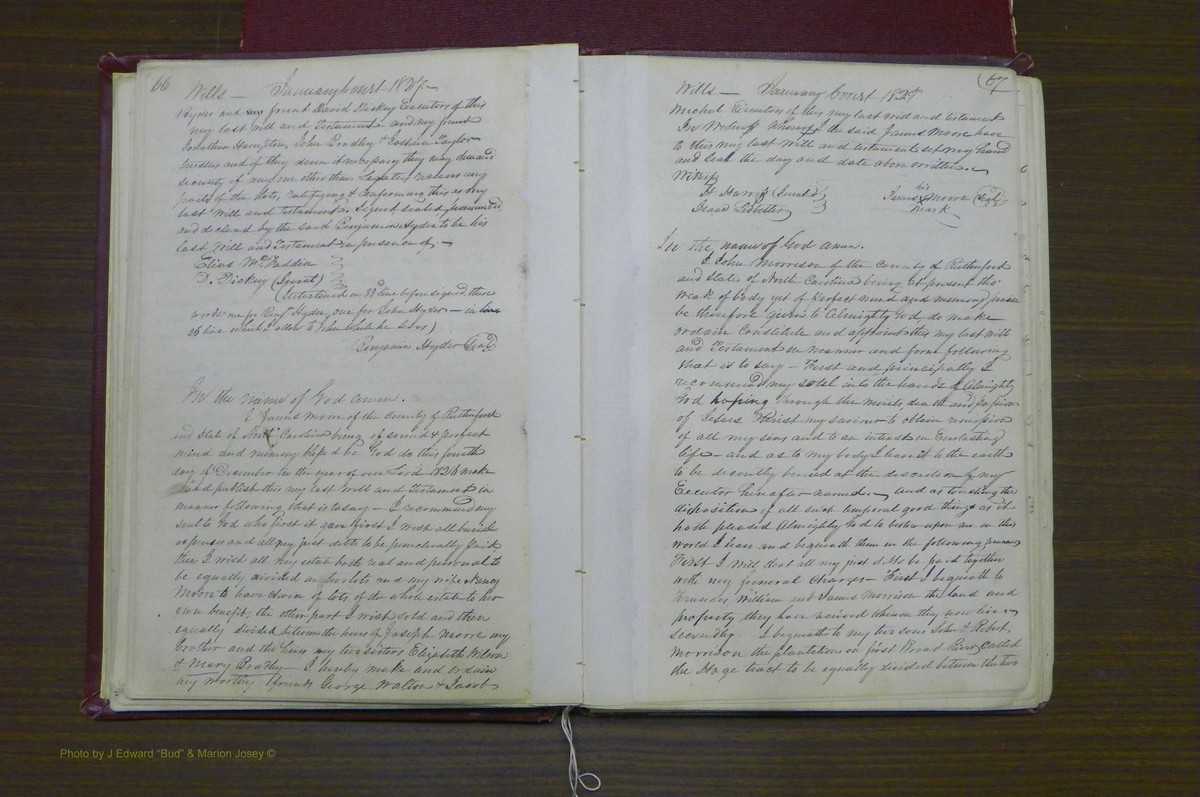 66
Wills — January Court 1827.
Hyder and friend David Dickey Executors of this
my last will and Testament and my friend
Jonathan Hampton, John Bradley & Joshua Taylor
trustees and if they deem it necessary they may demand
security of any one other than Legatees
parts of the lots, ratifying & Confirming this as my
last Will and testament. Signed, sealed pronounced,
and declared by the said Benjamin Hyder to be his
last Will and Testament in presence of, —
Elias McFaddin
D. Dickey (Jurat)
(Interlined in 33d line before signed, three
words one for Benjn Hyder, one for John Hyder — in
26 line which I allow to John while he lives)
Benjamin Hyder Seal
In the name of God amen.
I James Moore of the County of Rutherford
and State of North Carolina being of sound & perfect
mind and memory blessed be God do this fourth
day of December in the year of our Lord 1826 make
and publish this my last Will and Testament in
manner following that is to say — I recommend my
soul to God who first it gave first I wish all burial
expenses and all my just debts to be punctually paid
then I wish all my estate both real and personal to
be equally divided and my wife Nancy
Moore to have choice of lots of the whole estate to her
own benefit, the other part I wish sold and then
equally divided between the heirs of Joseph Moore my
brother and the heirs my two sisters Elizabeth Wilson
& Mary Bradley — I hereby make and ordain
my worthy friends George Walton & Jacob
67
Wills — January Court 1827
Michal Executors of this my last will and testament
In Witness Whereof I the said James Moore have
to this my last will and testament set my hand
and seal the day and date above written.
Witness
H Harris (Jurat)
Isaac Ledbetter
his
James Moore Seal
mark
In the name of God amen.
I John Morreson of the County of Rutherford
and State of North Carolina being at present tho'
weak of body yet of perfect mind and memory praise
be therefore given to Almighty God, do make
ordain Constitute and appoint this my last will
and Testament in manner and form following
that is to say — First and principally I
recommend my soul into the hands of Almighty
God hoping through the merits, death and passion
of Jesus Christ my saviour to obtain remission
of all my sins and to an interest in Everlasting
life — and as to my body I leave it to the earth
to be decently buried at the discretion of my
Executor hereafter named — and as touching the
disposition of all such temporal good things as it
hath pleased Almighty God to bestow upon me in this
world I leave and bequeath them in the following manner
First I Will that all my just debts be paid together
with my funeral Charges — First I bequeath to
Francis William and James Morrison the land and
property they have received whereon they now live —
secondly. I bequeath to my two sons John & Robert
Morrison the plantation on first Broad River, Called
the Hage tract to be equally divided between the two
Photo by J Edward "Bud" & Marion Josey ©